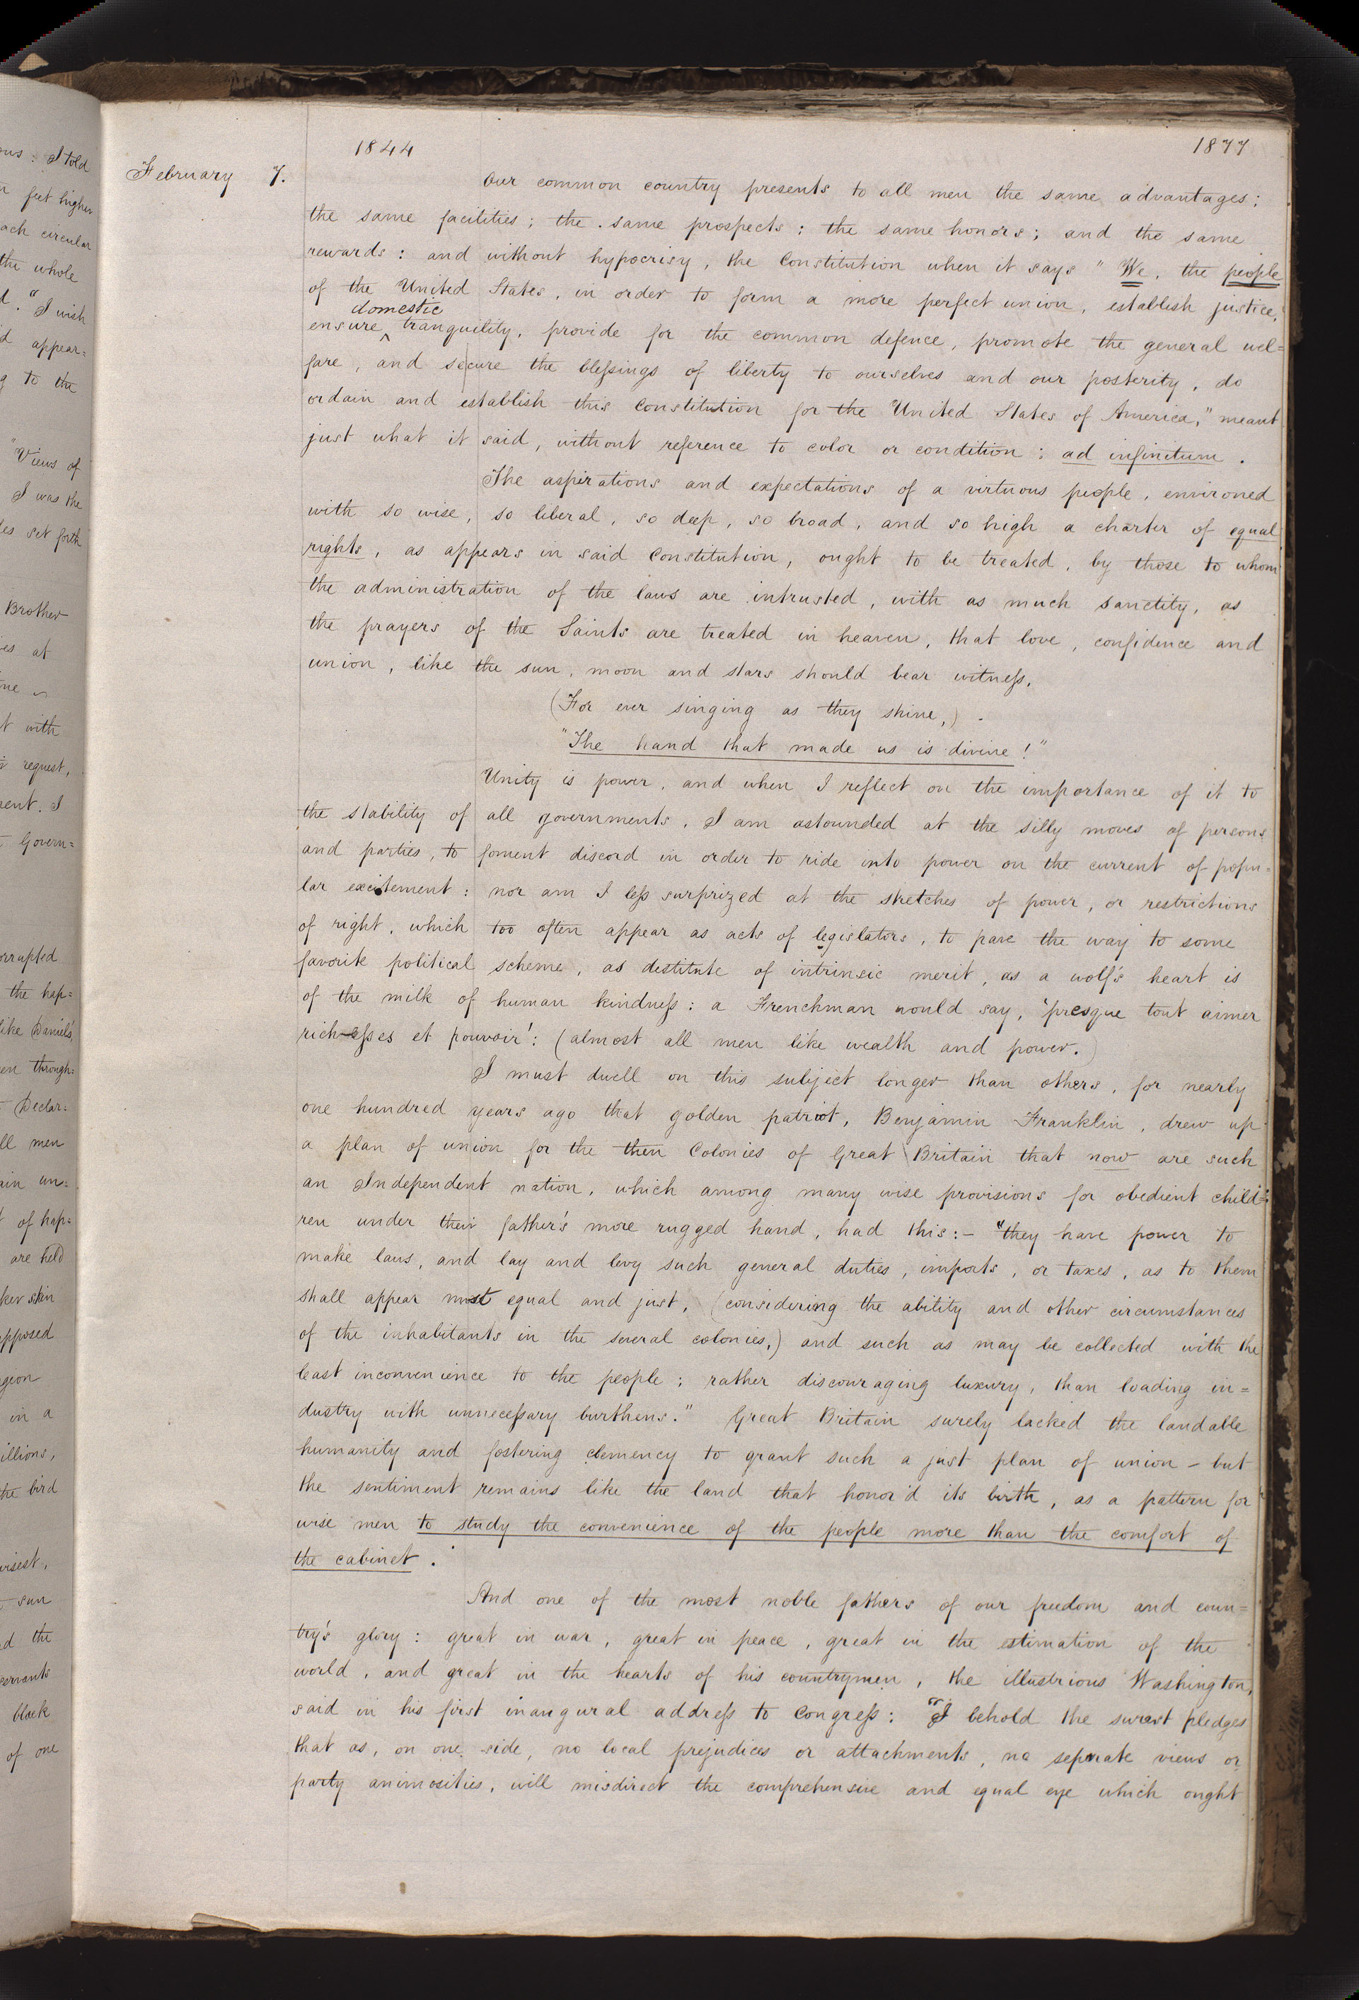 1844
1877
February 7.
Our common country presents to all men the same advantages;
the same facilities; the same prospects; the same honors; and the same
rewards: and without hypocrisy, the Constitution when it says "We, the people
of the United States, in order to form a more perfect union, establish justice,
domestic
ensure ^ tranquility, provide for the common defence, promote the general wel=
fare, and secure the blessings of liberty to ourselves and our posterity, do
ordain and establish this Constitution for the United States of America," meant
just what it said, without reference to color or condition: ad infinitum.
The aspirations and expectations of a virtuous people, environed
with so wise, so liberal, so deep, so broad, and so high a charter of equal
rights, as appears in said Constitution, ought to be treated, by those to whom
the administration of the laws are intrusted, with as much sanctity, as
the prayers of the Saints are treated in heaven, that love, confidence and
union, like the sun, moon and stars should bear witness,
(For ever singing as they shine,)
"The hand that made us is divine!"
Unity is power, and when I reflect on the importance of it to
the stability of all governments, I am astounded at the silly moves of persons
and parties, to foment discord in order to ride into power on the current of popu=
lar excitement: nor am I less surprized at the stretches of power, or restrictions
of right, which too often appear as acts of legislators, to pave the way to some
favorite political scheme, as destitute of intrinsic merit, as a wolf's heart is
of the milk of human kindness: a Frenchman would say, 'presque tout aimer
richesses et pouvoir': (almost all men like wealth and power.)
I must dwell on this subject longer than others, for nearly
one hundred years ago that golden patriot, Benjamin Franklin, drew up
a plan of union for the then Colonies of Great Britain that now are such
an Independent nation, which among many wise provisions for obedient child=
ren under their father's more rugged hand, had this:- "they have power to
make laws, and lay and levy such general duties, imposts, or taxes, as to them
shall appear most equal and just, (considering the ability and other circumstances
of the inhabitants in the several colonies,) and such as may be collected with the
least inconvenience to the people; rather discouraging luxury, than loading in=
dustry with unnecessary burthens." Great Britain surely lacked the laudable
humanity and fostering clemency to grant such a just plan of union - but
the sentiment remains like the land that honor'd its birth, as a pattern for
wise men to study the convenience of the people more than the comfort of
the cabinet.
And one of the most noble fathers of our freedom and coun=
try's glory: great in war, great in peace, great in the estimation of the
world, and great in the hearts of his countrymen, the illustrious Washington,
said in his first inaugural address to Congress: "I behold the surest pledges
that as, on one side, no local prejudices or attachments, no seperate views or
party animosities, will misdirect the comprehensive and equal eye which ought